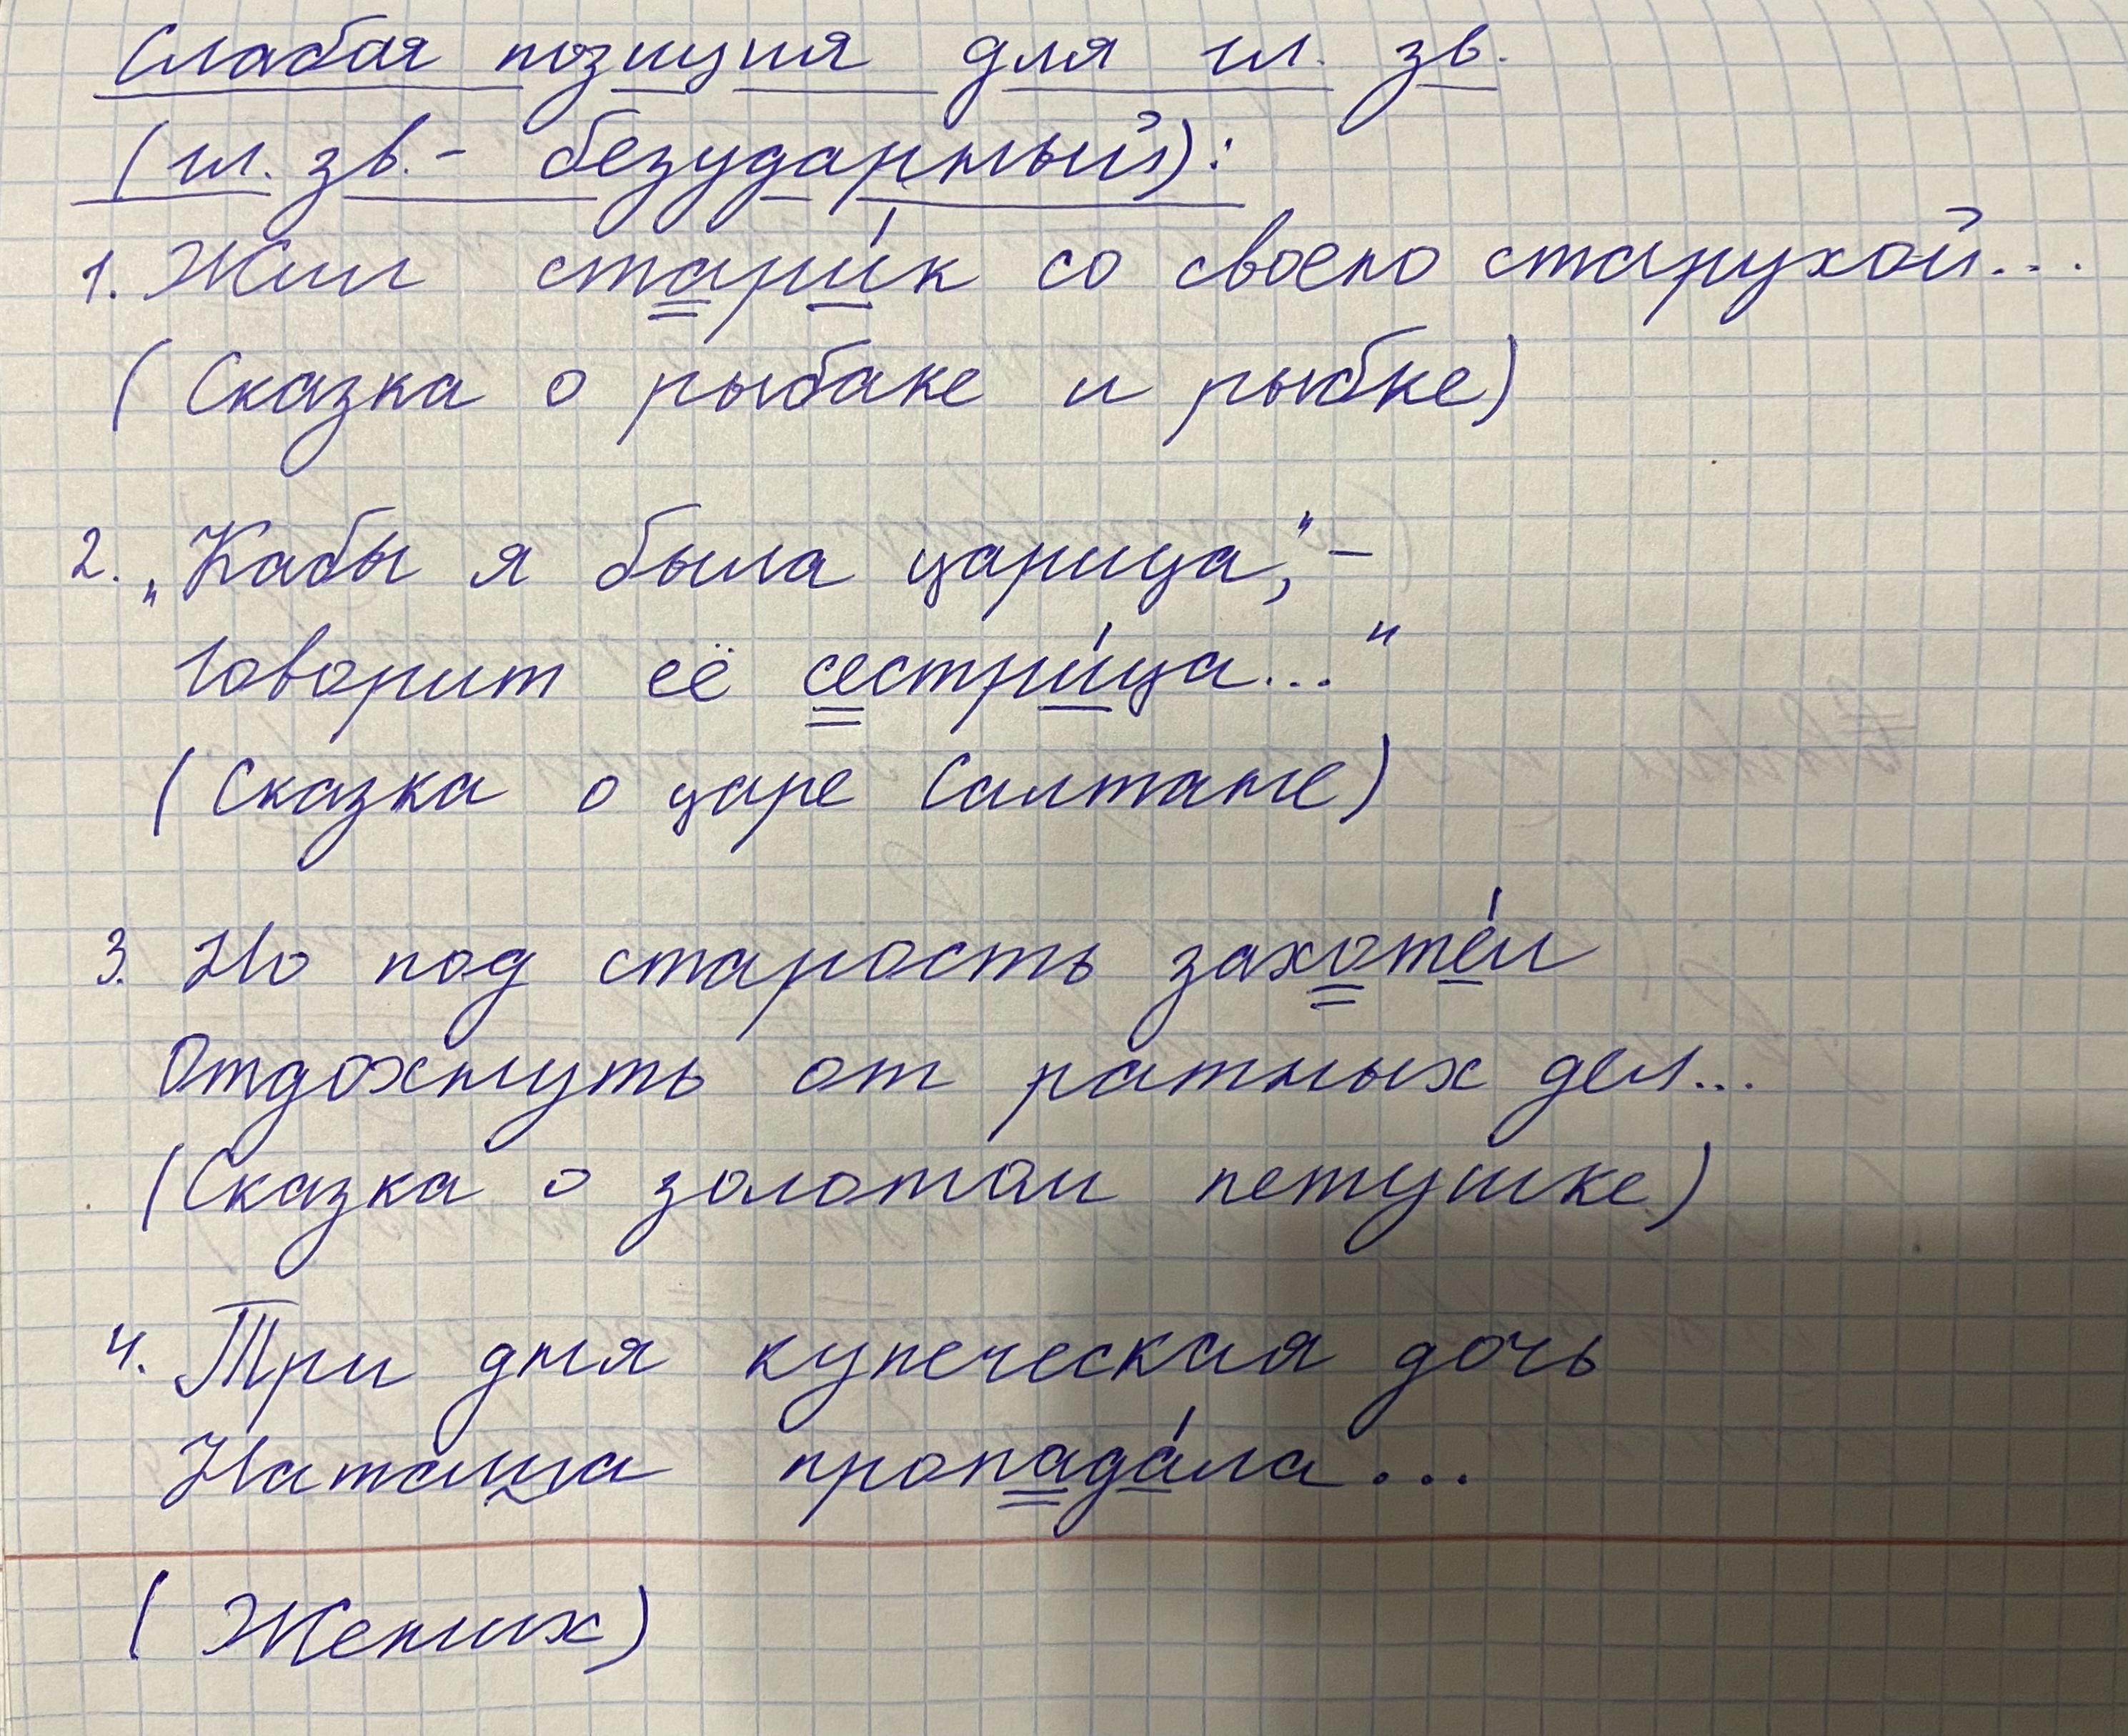 Слабая позиция для гл. зв.
(гл. зв. - безударный):
1. Жил стари́к со своею старухой...
(Сказка о рыбаке и рыбке)
2. „Кабы я была царица,” –
говорит её сестри́ца..."
(Сказка о царе Салтане)
3. Но под старость захоте́л
Отдохнуть от ратных дел...
(Сказка о золотом петушке)
4. Три дня купеческая дочь
Наташа пропада́ла...
(Жених)